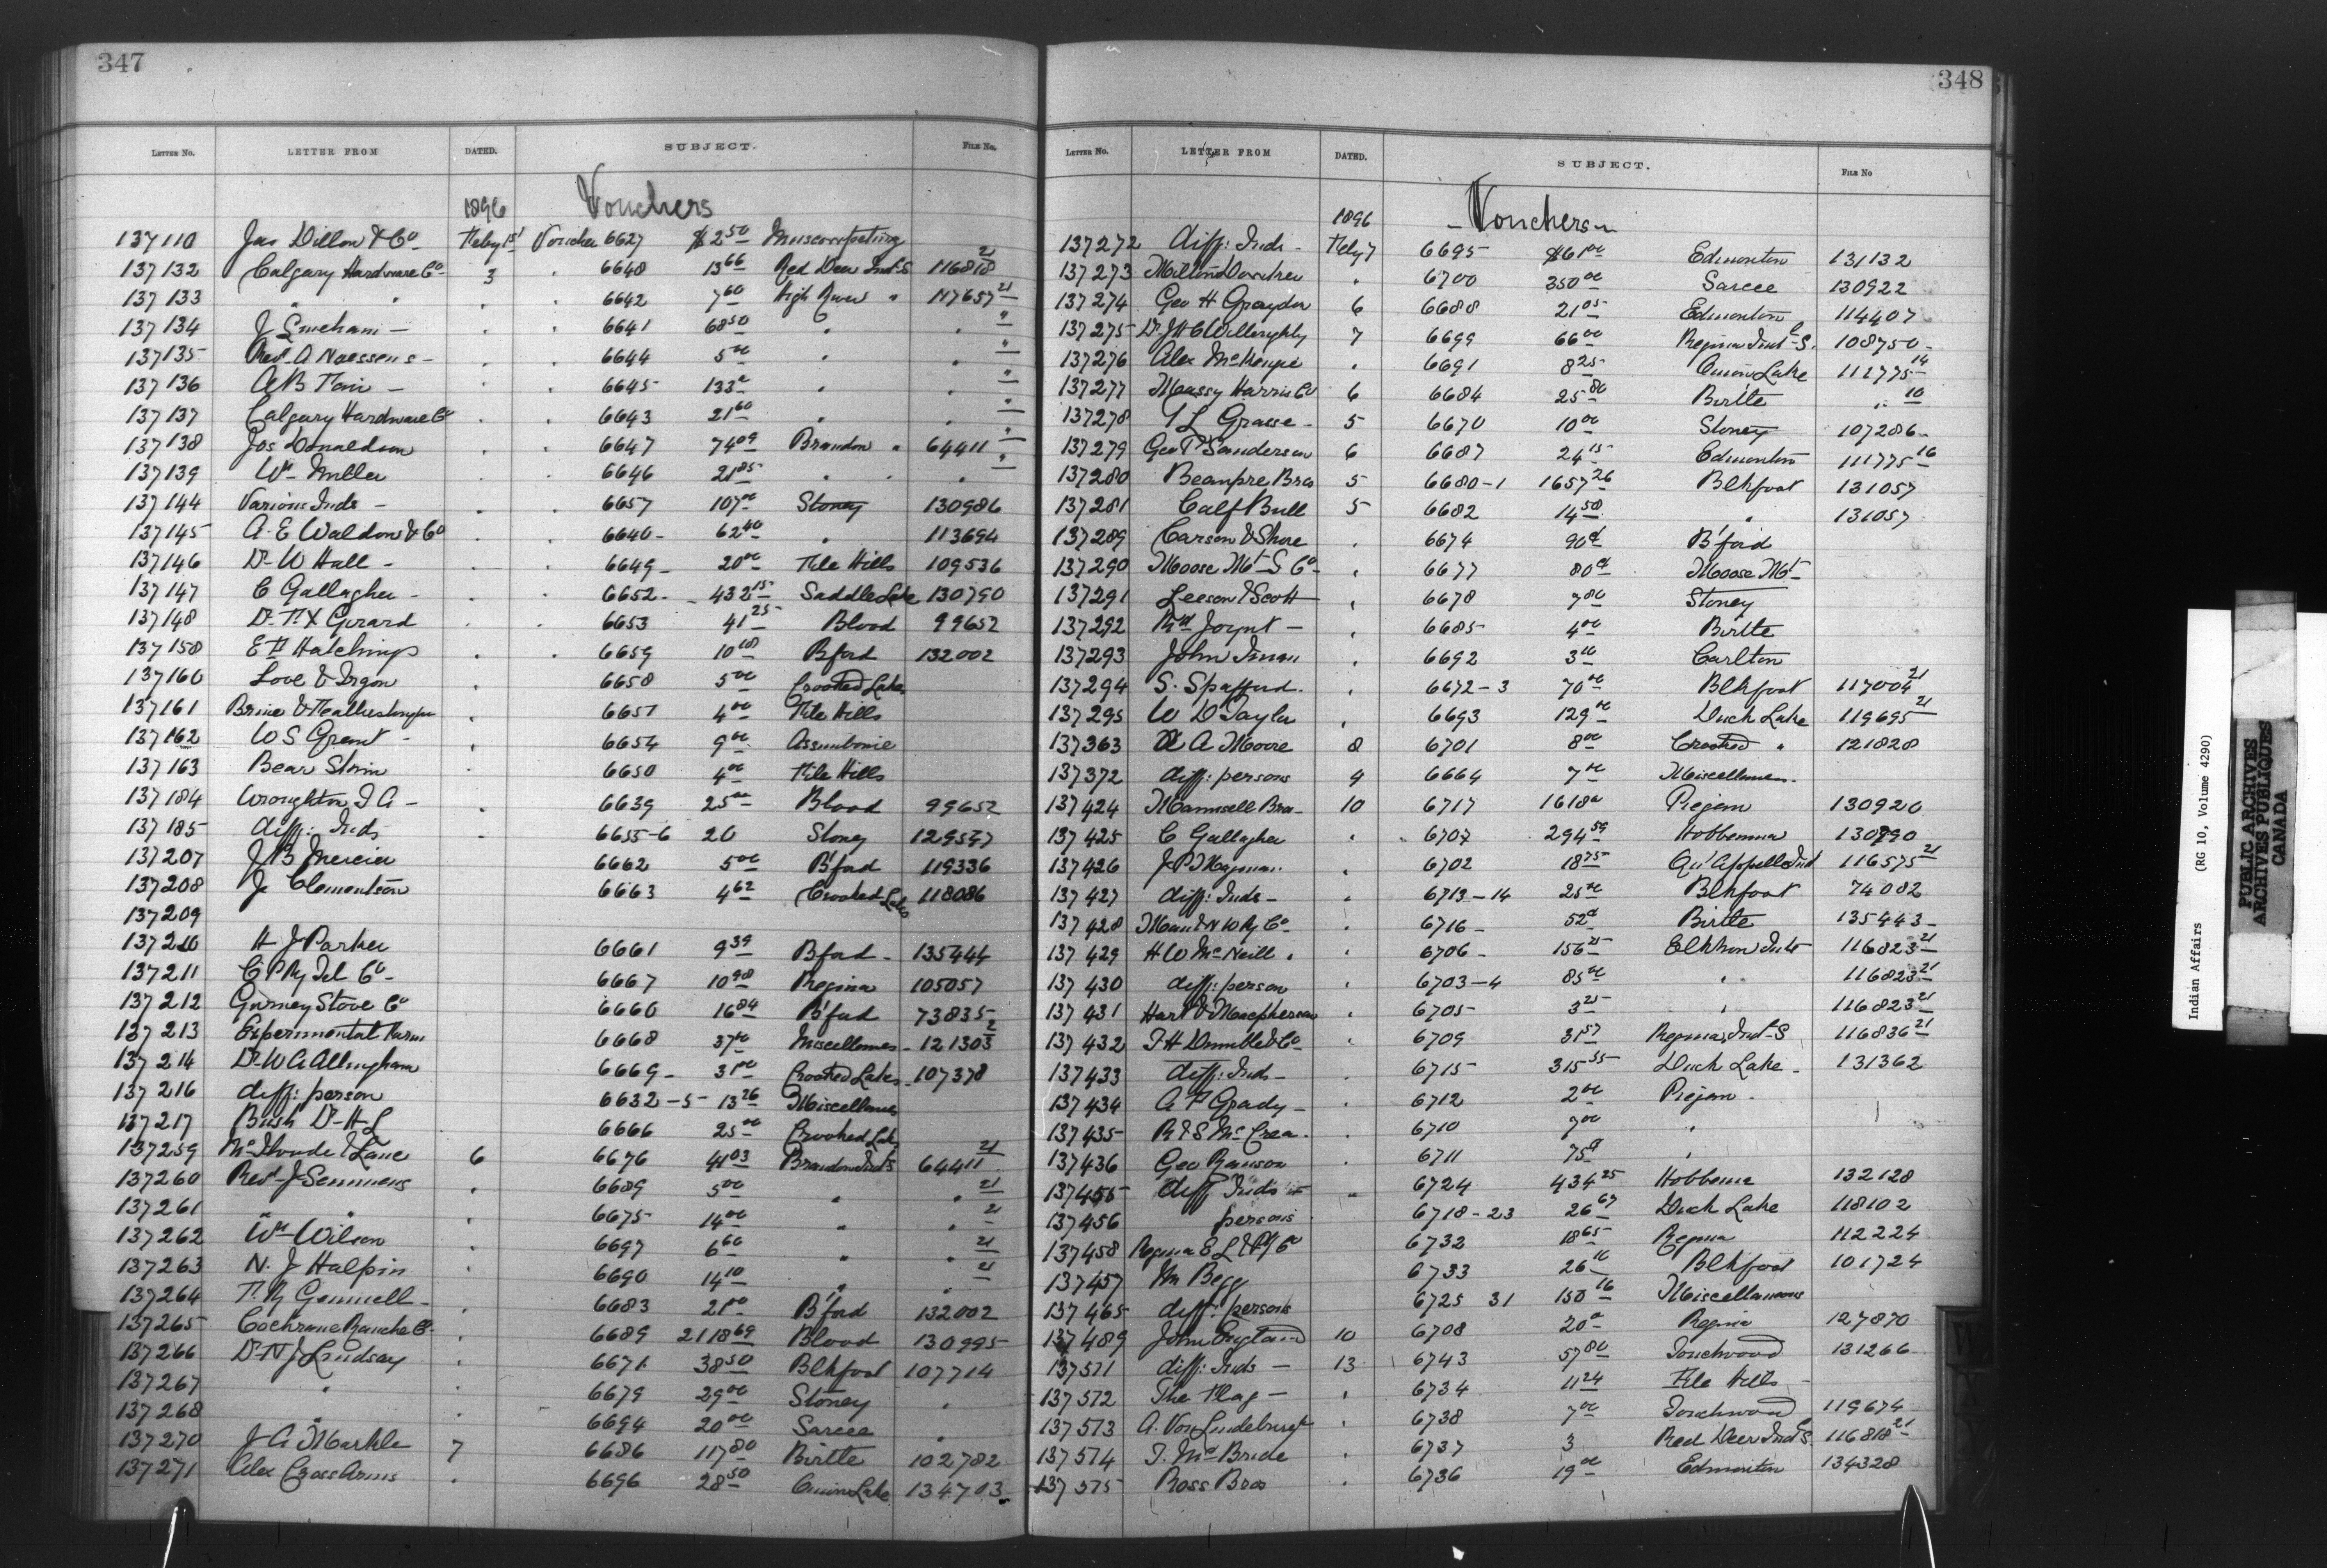 347
LETTER NO. LETTER FROM DATED. SUBJECT. FILE NO.
1896 Vouchers
137110 Jas Dillon & Co Feby 1st Voucher 6627 $2 50 Muscowpetung
137132 Calgary Hardware Co 3 " 6648 13 66 Red Deer Ind S 116818 21
137133 " " " " 6642 7 60 High River " 117657 21
137134 J Smeham - " " 6641 68 50 " " "
137135 Rev A Naessens - " " 6644 5 00 " " "
137136 " " 6645 133 " " "
137137 Calgary Hardware Co " " 6643 21 60 " " "
137138 Jos Donaldson " " 6647 74 09 Brandon " 64411 "
137139 Wm Miller " 6646 21 85 " " " "
137144 Various Inds - " " 6657 107 00 Stoney 130986
137145 A. E Waldon & Co " " 6640 - 62 40 " 113694
137146 Dr W Hall - " " 6649 - 20 00 File Hills 109536
137147 C Gallagher - " " 6652 - 432 15 Saddle Lake 130790
137148 Dr F X Girard " " 6653 41 25 Blood 99652
137158 E F Hutchings " " 6659 10 08 Bford 132002
137160 Love & " 6658 5 00 Crooked Lakes
137161 " 6651 4 00 File Hills
137162 W S Grant - " 6654 9 00 Assiniboine
137163 Bear Skin " 6650 4 00 File Hills
137184 Wroughton T A - " 6639 25 00 Blood 99652
137185 diff: Inds " 6655-6 20 Stoney 129537
137207 J B Mercier 6662 5 00 B'ford 119336
137208 J Clementson 6663 4 62 Crooked Lakes 118086
137209
137210 H J Parker 6661 9 39 Bford - 135444
137211 C P Ry Tel Co - 6667 10 98 Regina 105057
137212 Gurney Stove Co 6660 16 84 B'ford 73835
137213 Experimental Farm 6668 37 00 Miscellaneous - 121303 2
137214 Dr W A Allingham 6669 - 31 00 Crooked Lakes - 107378
137216 diff: person 6632-5 - 13 26 Miscellaneous
137217 Bush Dr H L 6666 25 00 Crooked Lakes
137259 & Lane 6 6676 41 03 Brandon Ind S 64411 21
137260 Rev J Semmens " 6689 5 00 " " 21
137261 " " " 6675 14 00 " " 21
137262 Wm Wilson " 6697 6 60 " " 21
137263 N. J Halpin " 6690 14 10 " " 21
137264 T. R Gemmell - " 6683 21 00 B'ford 132002
137265 Cochrane Ranche Co " 6689 2118 69 Blood 130995
137266 Dr N J Lindsay " 6671 38 50 Blkfoot 107714
137267 " " 6679 29 00 Stoney "
137268 " " 6694 20 00 Sarcee "
137270 J A Markle 7 6686 117 80 Birtle 102782
137271 Alex " 6696 28 50 Onion Lake 134703
348
LETTER NO. LETTER FROM DATED. SUBJECT. FILE NO
1896 - Vouchers -
137272 diff: Inds - Feby 7 6695 $61 00 Edmonton 131132
137273 Milton " 6700 350 00 Sarcee 130922
137274 Geo H Graydon 6 6688 21 05 Edmonton 114407
137275 Dr J H C Willoughby 7 6699 66 00 Regina Ind S. 108750 -
137276 Alex McKenzie " 6691 8 25 Onion Lake 111775 14
137277 Massy Harris Co 6 6684 25 80 Birtle " 10
137278 L Grasse - 5 6670 10 00 Stoney 107286 -
137279 Geo P Sanderson 6 6687 24 15 Edmonton 111775 16
137280 Beaupre Bros 5 6680-1 1657 26 Blkfoot 131057
137281 Calf Bull 5 6682 14 50 " 131057
137289 Carson & Shore " 6674 90 B'ford
137290 Moose Mt S Co - " 6677 80 Moose Mt -
137291 Leeson & Scott " 6678 7 80 Stoney
137292 Joynt - " 6685 4 00 Birtle
137293 John " 6692 3 Carlton
137294 S. Spafford. " 6672-3 70 00 Blkfoot 117004 21
137295 W D Taylor " 6693 129 00 Duck Lake 119695 21
137363 A Moore 8 6701 8 00 Crooked " 121828
137372 diff: persons 9 6664 7 00 Miscellaneous.
137424 Maunsell Bros - 10 6717 1618 Piegan 130920
137425 C Gallagher " 6707 294 59 Hobbema 130790
137426 " 6702 18 75 Qu'Appelle Ind 116575 21
137427 diff: Inds - " 6713-14 25 00 Blkfoot 74082
137428 Man & N W Ry Co " 6716 - 52 Birtle 135443 -
137429 H W McNeill " " 6706 - 156 25 Elkhorn Inds 116823 21
137430 diff: person " 6703-4 85 00 " 116823 21
137431 Hart & Macpherson " 6705 3 25 " 116823 21
137432 Co " 6709 31 57 Regina Ind S 116836 21
137433 diff: Inds - " 6715 315 55 Duck Lake - 131362
137434 A F Grady - " 6712 2 00 Piegan -
137435 R & S McCrea. " 6710 7 00 "
137436 Geo Ranson " 6711 75 "
137455 diff Inds " 6724 434 25 Hobbema 132128
137456 persons 6718-23 26 67 Duck Lake 118102
137458 Regina E L & P Co 6732 18 65 Regina 112224
137457 M Begg 6733 26 10 Blkfoot 101724
137465 diff: persons 6725 31 150 16 Miscellaneous
137489 John England 10 6708 20 Regina 127870
137511 diff: Inds - 13 6743 57 80 Touchwood 131266
137512 The Flag - " 6734 11 24 File Hills -
137513 A. Von Lindeburgh " 6738 7 00 Touchwood 119674
137514 T. McBride " 6737 3 Red Deer Ind S. 116818 21
137515 Ross Bros " 6736 19 00 Edmonton 134328
Indian Affairs (RG 10, Volume 4290)
PUBLIC ARCHIVES
ARCHIVES PUBLIQUES
CANADA